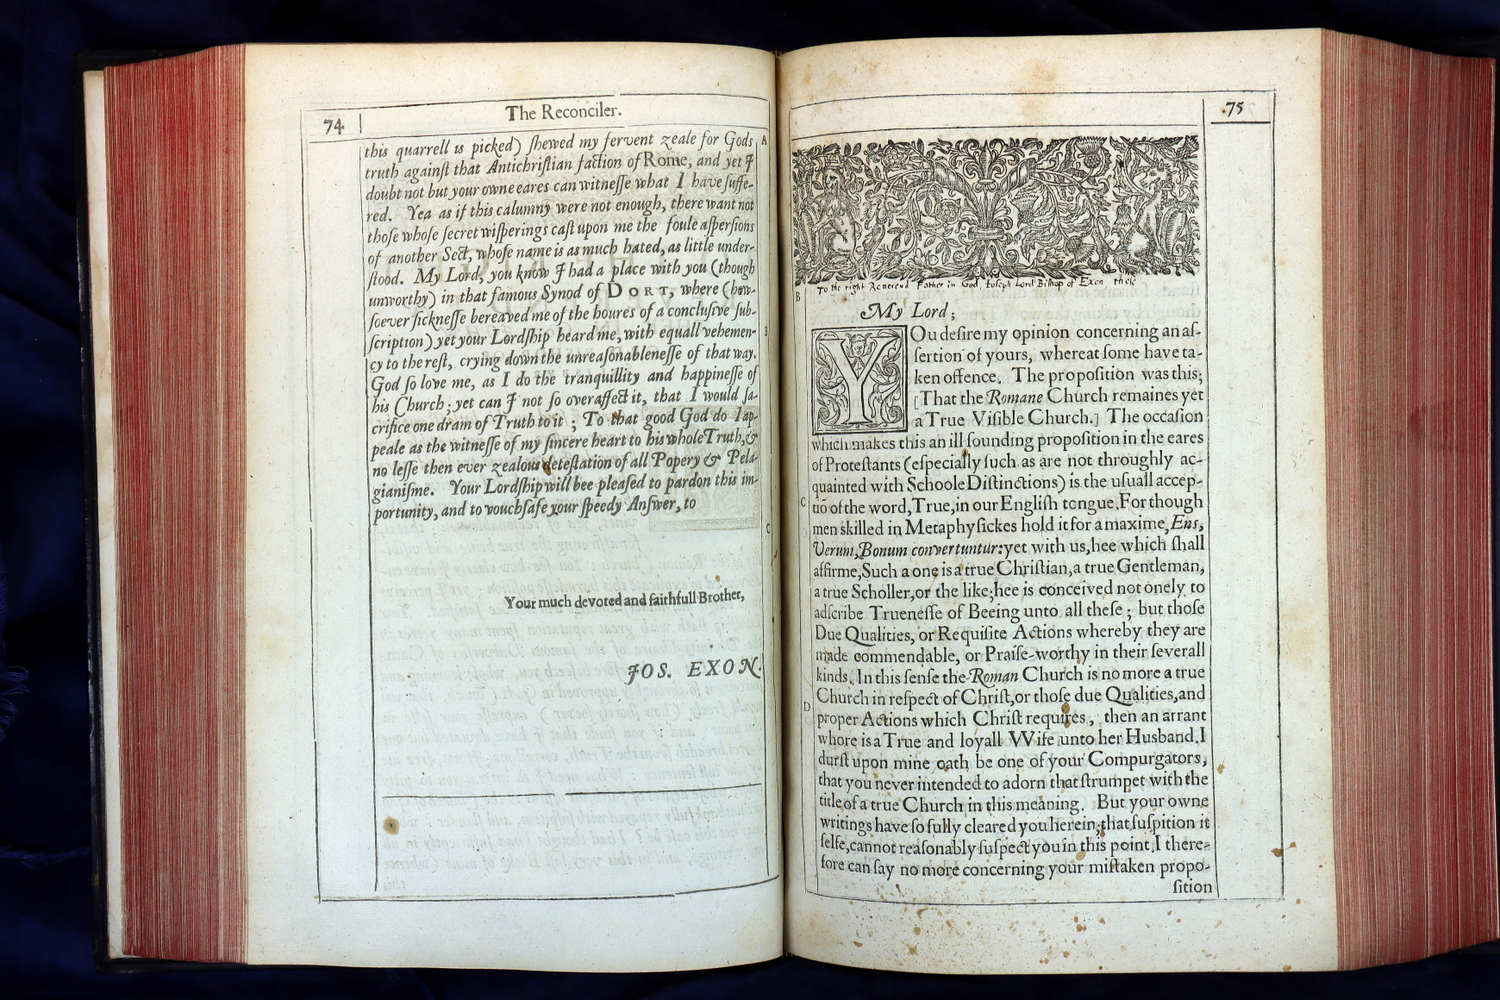 74
The Reconciler.
this quarrell is picked) shewed my fervent zeale for Gods
truth against that Antichristian faction of Rome, and yet I
doubt not but your owne eares can witnesse what I have suffe-
red. Yea as if this calumny were not enough, there want not
those whose secret wisperings cast upon me the foule aspersions
of another Sect, whose name is as much hated, as little under-
stood. My Lord, you know I had a place with you (though
unworthy) in that famous Synod of DORT, where (how-
soever sicknesse bereaved me of the houres of a conclusive sub-
scription) yet your Lordship heard me, with equall vehemen-
cy to the rest, crying down the unreasonablenesse of that way.
God so love me, as I do the tranquillity and happinesse of
his Church; yet can I not so overaffect it, that I would sa-
crifice one dram of Truth to it; To that good God do I ap-
peale as the witnesse of my sincere heart to his whole Truth, &
no lesse then ever zealous detestation of all Popery & Pela-
gianisme. Your Lordship will bee pleased to pardon this im-
portunity, and to vouchsafe your speedy Answer, to
Your much devoted and faithfull Brother,
JOS. EXON.
A
B
C
75
To the right Reverend Father in God Ioseph Lord Bishop of Exon
My Lord;
YOu desire my opinion concerning an as-
sertion of yours, whereat some have ta-
ken offence. The proposition was this;
[That the Romane Church remaines yet
a True Visible Church.] The occasion
which makes this an ill sounding proposition in the eares
of Protestants (especially such as are not throughly ac-
quainted with Schoole Distinctions) is the usuall accep-
tiō of the word, True, in our English tongue. For though
men skilled in Metaphysickes hold it for a maxime, Ens,
Verum, Bonum convertuntur: yet with us, hee which shall
affirme, Such a one is a true Christian, a true Gentleman,
a true Scholler, or the like; hee is conceived not onely to
adscribe Truenesse of Beeing unto all these; but those
Due Qualities, or Requisite Actions whereby they are
made commendable, or Praise-worthy in their severall
kinds. In this sense the Roman Church is no more a true
Church in respect of Christ, or those due Qualities, and
proper Actions which Christ requires, then an arrant
whore is a True and loyall Wife unto her Husband. I
durst upon mine oath be one of your Compurgators,
that you never intended to adorn that strumpet with the
title of a true Church in this meaning. But your owne
writings have so fully cleared you herein, that suspition it
selfe, cannot reasonably suspect you in this point. I there-
fore can say no more concerning your mistaken propo-
sition
B
C
D